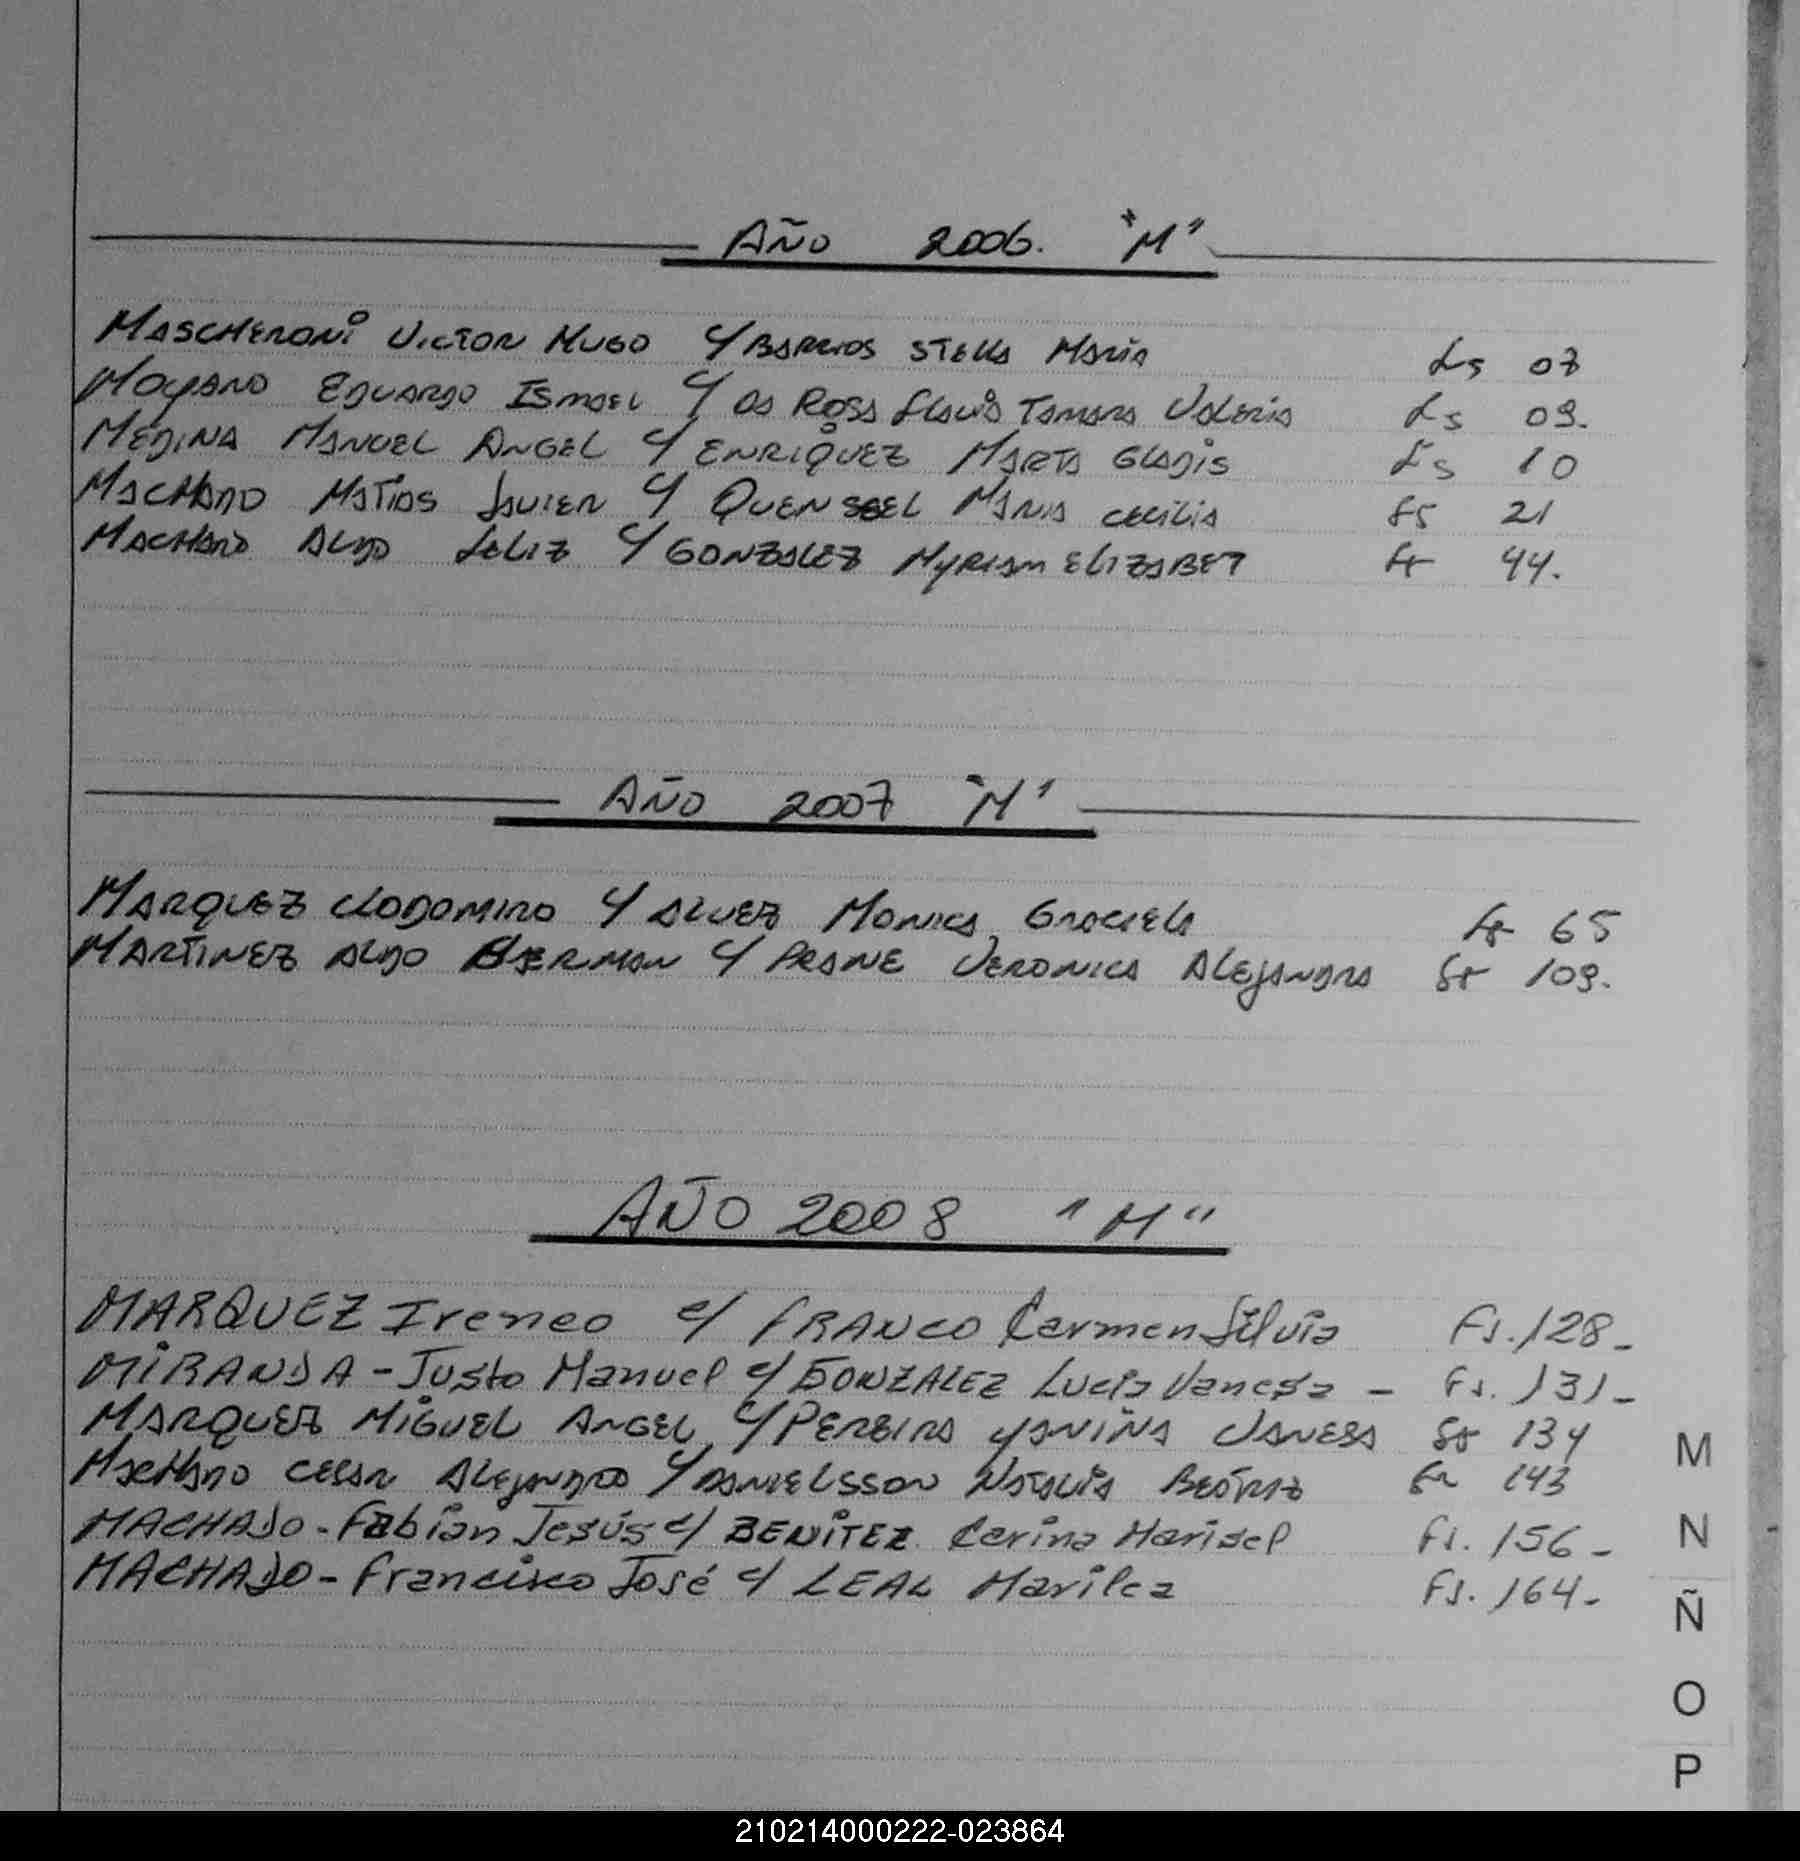 Año 2006. "M"
Mascheroni Victor Hugo c/ Barrios Stella Maria Fs 07
Moyano Eduardo Ismael c/ Da Rosa Flavia Tamara Valeria Fs 09.
Medina Manuel Angel c/ Enriquez Marta Gladis Fs 10
Machado Matias Javier c/ Quensel Maria Cecilia Fs 21
Machado Aldo Feliz c/ Gonzalez Myriam Elizabet Fs 44.
Año 2007 "M"
Marquez Clodomiro c/ Alvez Monica Graciela Fs 65
Martinez Aldo German c/ Prane Veronica Alejandra Fs 109.
AÑO 2008 "M"
MARQUEZ Ireneo c/ FRANCO Carmen Silvia Fs. 128-
MIRANDA - Justo Manuel c/ GONZALEZ Lucia Vanesa - Fs. 131-
MARQUEZ MIGUEL ANGEL c/ PEREIRA YANINA VANESA Fs 134
Machado Cesar Alejandro c/ Danielsson Natalia Beatriz Fs 143
MACHADO - Fabian Jesús c/ BENITEZ Carina Marisel Fs. 156-
MACHADO - Francisco José c/ LEAL Marilea Fs. 164-
M
N
Ñ
O
P
210214000222-023864